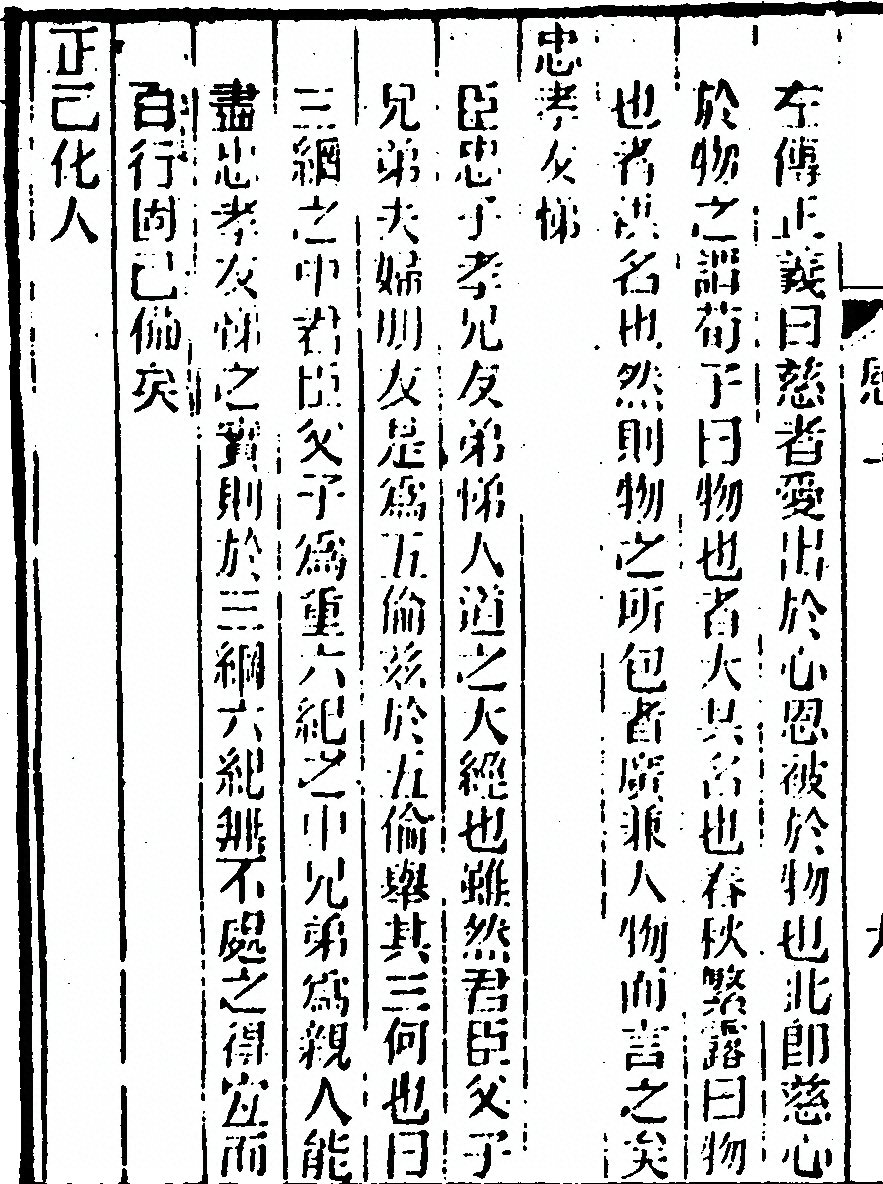 左傳正義曰慈者愛出於心恩被於物也此卽慈心
於物之謂荀子曰物也者大共名也春秋繁露曰物
也者洪名也然則物之所包者廣兼人物而言之矣
忠孝友悌
臣忠子孝兄友弟悌人道之大經也雖然君臣父子
兄弟夫婦朋友是爲五倫茲於五倫舉其三何也曰
三綱之中君臣父子爲重六紀之中兄弟爲親人能
盡忠孝友悌之實則於三綱六紀無不處之得宜而
百行固已備矣
正己化人